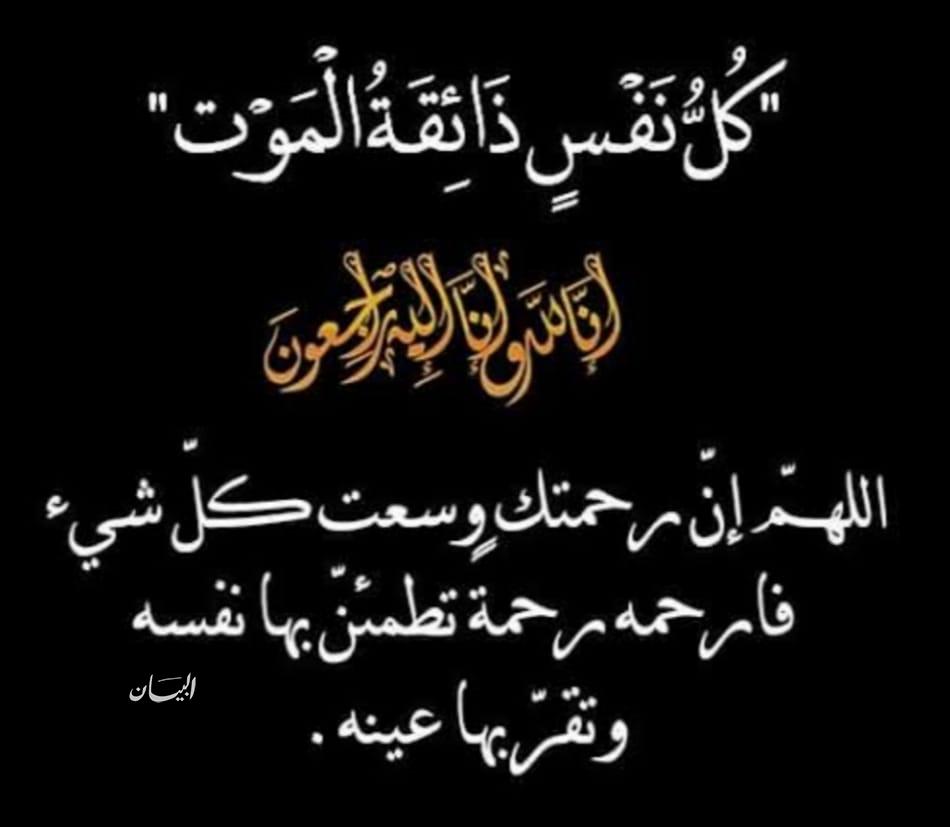 "كُلُّ نَفْسٍ ذَائِقَةُ الْمَوْت"
إنَّا لله وإِنَّا إِلَيْهِ رَاجِعونَ
اللهمّ إنّ رحمتك وٍسعت كلّ شيء
فارحمه رحمة تطمئنّ بها نفسه
البيَان
وتقرّ بها عينه .